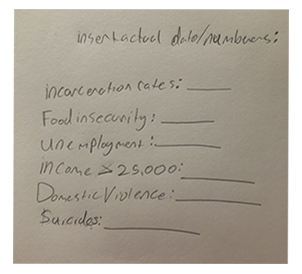 insert actual data/numbers:
incarceration rates: ____
Food insecurity: ____
Unemployment: ____
income ≥ 25,000: ____
Domestic Violence: ____
Suicides: ____